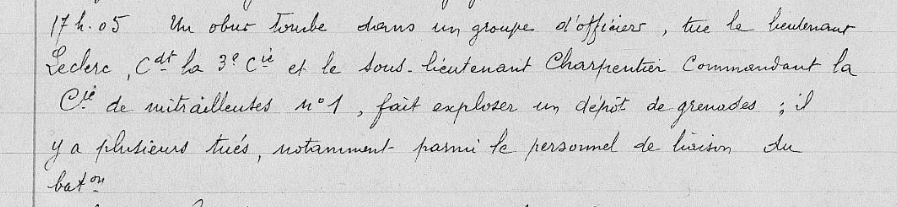 17 h. 05 Un obus tombe dans un groupe d'officiers, tue le lieutenant
Leclerc, Cdt la 3e Cie et le sous-lieutenant Charpentier Commandant la
Cie de mitrailleuses n°1, fait exploser un dépôt de grenades ; il
y a plusieurs tués, notamment parmi le personnel de liaison du
baton